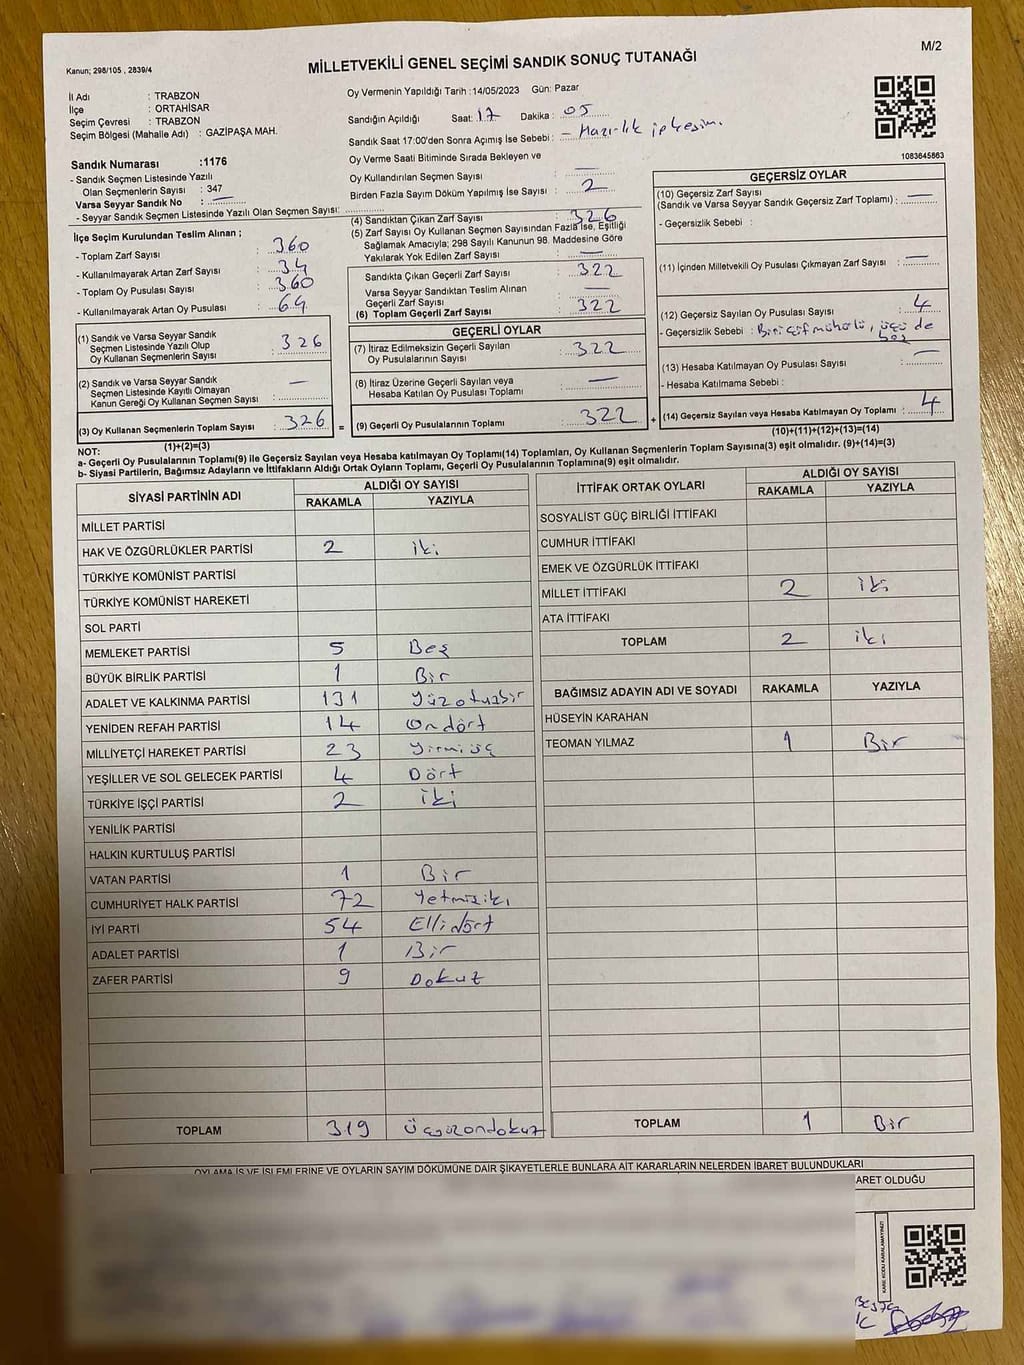 M/2
Kanun; 298/105 , 2839/4
MİLLETVEKİLİ GENEL SEÇİMİ SANDIK SONUÇ TUTANAĞI
İl Adı : TRABZON
İlçe : ORTAHİSAR
Seçim Çevresi : TRABZON
Seçim Bölgesi (Mahalle Adı) : GAZİPAŞA MAH.
Oy Vermenin Yapıldığı Tarih :14/05/2023 Gün: Pazar
Sandığın Açıldığı Saat: 17 Dakika : 05
Sandık Saat 17:00'den Sonra Açımış İse Sebebi :
Oy Verme Saati Bitiminde Sırada Bekleyen ve
Oy Kullandırılan Seçmen Sayısı : —
Birden Fazla Sayım Döküm Yapılmış İse Sayısı : 2
1083645863
Sandık Numarası :1176
- Sandık Seçmen Listesinde Yazılı
Olan Seçmenlerin Sayısı : 347
Varsa Seyyar Sandık No : —
- Seyyar Sandık Seçmen Listesinde Yazılı Olan Seçmen Sayısı:
İlçe Seçim Kurulundan Teslim Alınan ;
- Toplam Zarf Sayısı : 360
- Kullanılmayarak Artan Zarf Sayısı : 34
- Toplam Oy Pusulası Sayısı : 360
- Kullanılmayarak Artan Oy Pusulası : 64
(1) Sandık ve Varsa Seyyar Sandık
Seçmen Listesinde Yazılı Olup
Oy Kullanan Seçmenlerin Sayısı : 326
(2) Sandık ve Varsa Seyyar Sandık
Seçmen Listesinde Kayıtlı Olmayan
Kanun Gereği Oy Kullanan Seçmen Sayısı : —
(3) Oy Kullanan Seçmenlerin Toplam Sayısı : 326
(1)+(2)=(3)
(4) Sandıktan Çıkan Zarf Sayısı : 326
(5) Zarf Sayısı Oy Kullanan Seçmen Sayısından Fazla İse, Eşitliği
Sağlamak Amacıyla; 298 Sayılı Kanunun 98. Maddesine Göre
Yakılarak Yok Edilen Zarf Sayısı : —
Sandıkta Çıkan Geçerli Zarf Sayısı : 322
Varsa Seyyar Sandıktan Teslim Alınan
Geçerli Zarf Sayısı : —
(6) Toplam Geçerli Zarf Sayısı : 322
GEÇERLİ OYLAR
(7) İtiraz Edilmeksizin Geçerli Sayılan
Oy Pusulalarının Sayısı : 322
(8) İtiraz Üzerine Geçerli Sayılan veya
Hesaba Katılan Oy Pusulası Toplamı : —
= (9) Geçerli Oy Pusulalarının Toplamı : 322 +
GEÇERSİZ OYLAR
(10) Geçersiz Zarf Sayısı
(Sandık ve Varsa Seyyar Sandık Geçersiz Zarf Toplamı) : —
- Geçersizlik Sebebi :
(11) İçinden Milletvekili Oy Pusulası Çıkmayan Zarf Sayısı : —
(12) Geçersiz Sayılan Oy Pusulası Sayısı : 4
- Geçersizlik Sebebi : Biri çift mühürlü, üçü de
boş
(13) Hesaba Katılmayan Oy Pusulası Sayısı : —
- Hesaba Katılmama Sebebi :
(14) Geçersiz Sayılan veya Hesaba Katılmayan Oy Toplamı : 4
(10)+(11)+(12)+(13)=(14)
NOT:
a- Geçerli Oy Pusulalarının Toplamı(9) ile Geçersiz Sayılan veya Hesaba katılmayan Oy Toplamı(14) Toplamları, Oy Kullanan Seçmenlerin Toplam Sayısına(3) eşit olmalıdır. (9)+(14)=(3)
b- Siyasi Partilerin, Bağımsız Adayların ve İttifakların Aldığı Ortak Oyların Toplamı, Geçerli Oy Pusulalarının Toplamına(9) eşit olmalıdır.
SİYASİ PARTİNİN ADI ALDIĞI OY SAYISI
RAKAMLA YAZIYLA
MİLLET PARTİSİ
HAK VE ÖZGÜRLÜKLER PARTİSİ 2 iki
TÜRKİYE KOMÜNİST PARTİSİ
TÜRKİYE KOMÜNİST HAREKETİ
SOL PARTİ
MEMLEKET PARTİSİ 5 Beş
BÜYÜK BİRLİK PARTİSİ 1 Bir
ADALET VE KALKINMA PARTİSİ 131 Yüzotuzbir
YENİDEN REFAH PARTİSİ 14 Ondört
MİLLİYETÇİ HAREKET PARTİSİ 23 Yirmiüç
YEŞİLLER VE SOL GELECEK PARTİSİ 4 Dört
TÜRKİYE İŞÇİ PARTİSİ 2 iki
YENİLİK PARTİSİ
HALKIN KURTULUŞ PARTİSİ
VATAN PARTİSİ 1 Bir
CUMHURİYET HALK PARTİSİ 72 Yetmişiki
İYİ PARTİ 54 Ellidört
ADALET PARTİSİ 1 Bir
ZAFER PARTİSİ 9 Dokuz
TOPLAM 319 Üçyüzondokuz
İTTİFAK ORTAK OYLARI ALDIĞI OY SAYISI
RAKAMLA YAZIYLA
SOSYALİST GÜÇ BİRLİĞİ İTTİFAKI
CUMHUR İTTİFAKI
EMEK VE ÖZGÜRLÜK İTTİFAKI
MİLLET İTTİFAKI 2 iki
ATA İTTİFAKI
TOPLAM 2 iki
BAĞIMSIZ ADAYIN ADI VE SOYADI RAKAMLA YAZIYLA
HÜSEYİN KARAHAN
TEOMAN YILMAZ 1 Bir
TOPLAM 1 Bir
OYLAMA İŞ VE İŞLEMLERİNE VE OYLARIN SAYIM DÖKÜMÜNE DAİR ŞİKAYETLERLE BUNLARA AİT KARARLARIN NELERDEN İBARET BULUNDUKLARI
ARET OLDUĞU
KARE KODU KARALAMAYINIZ!